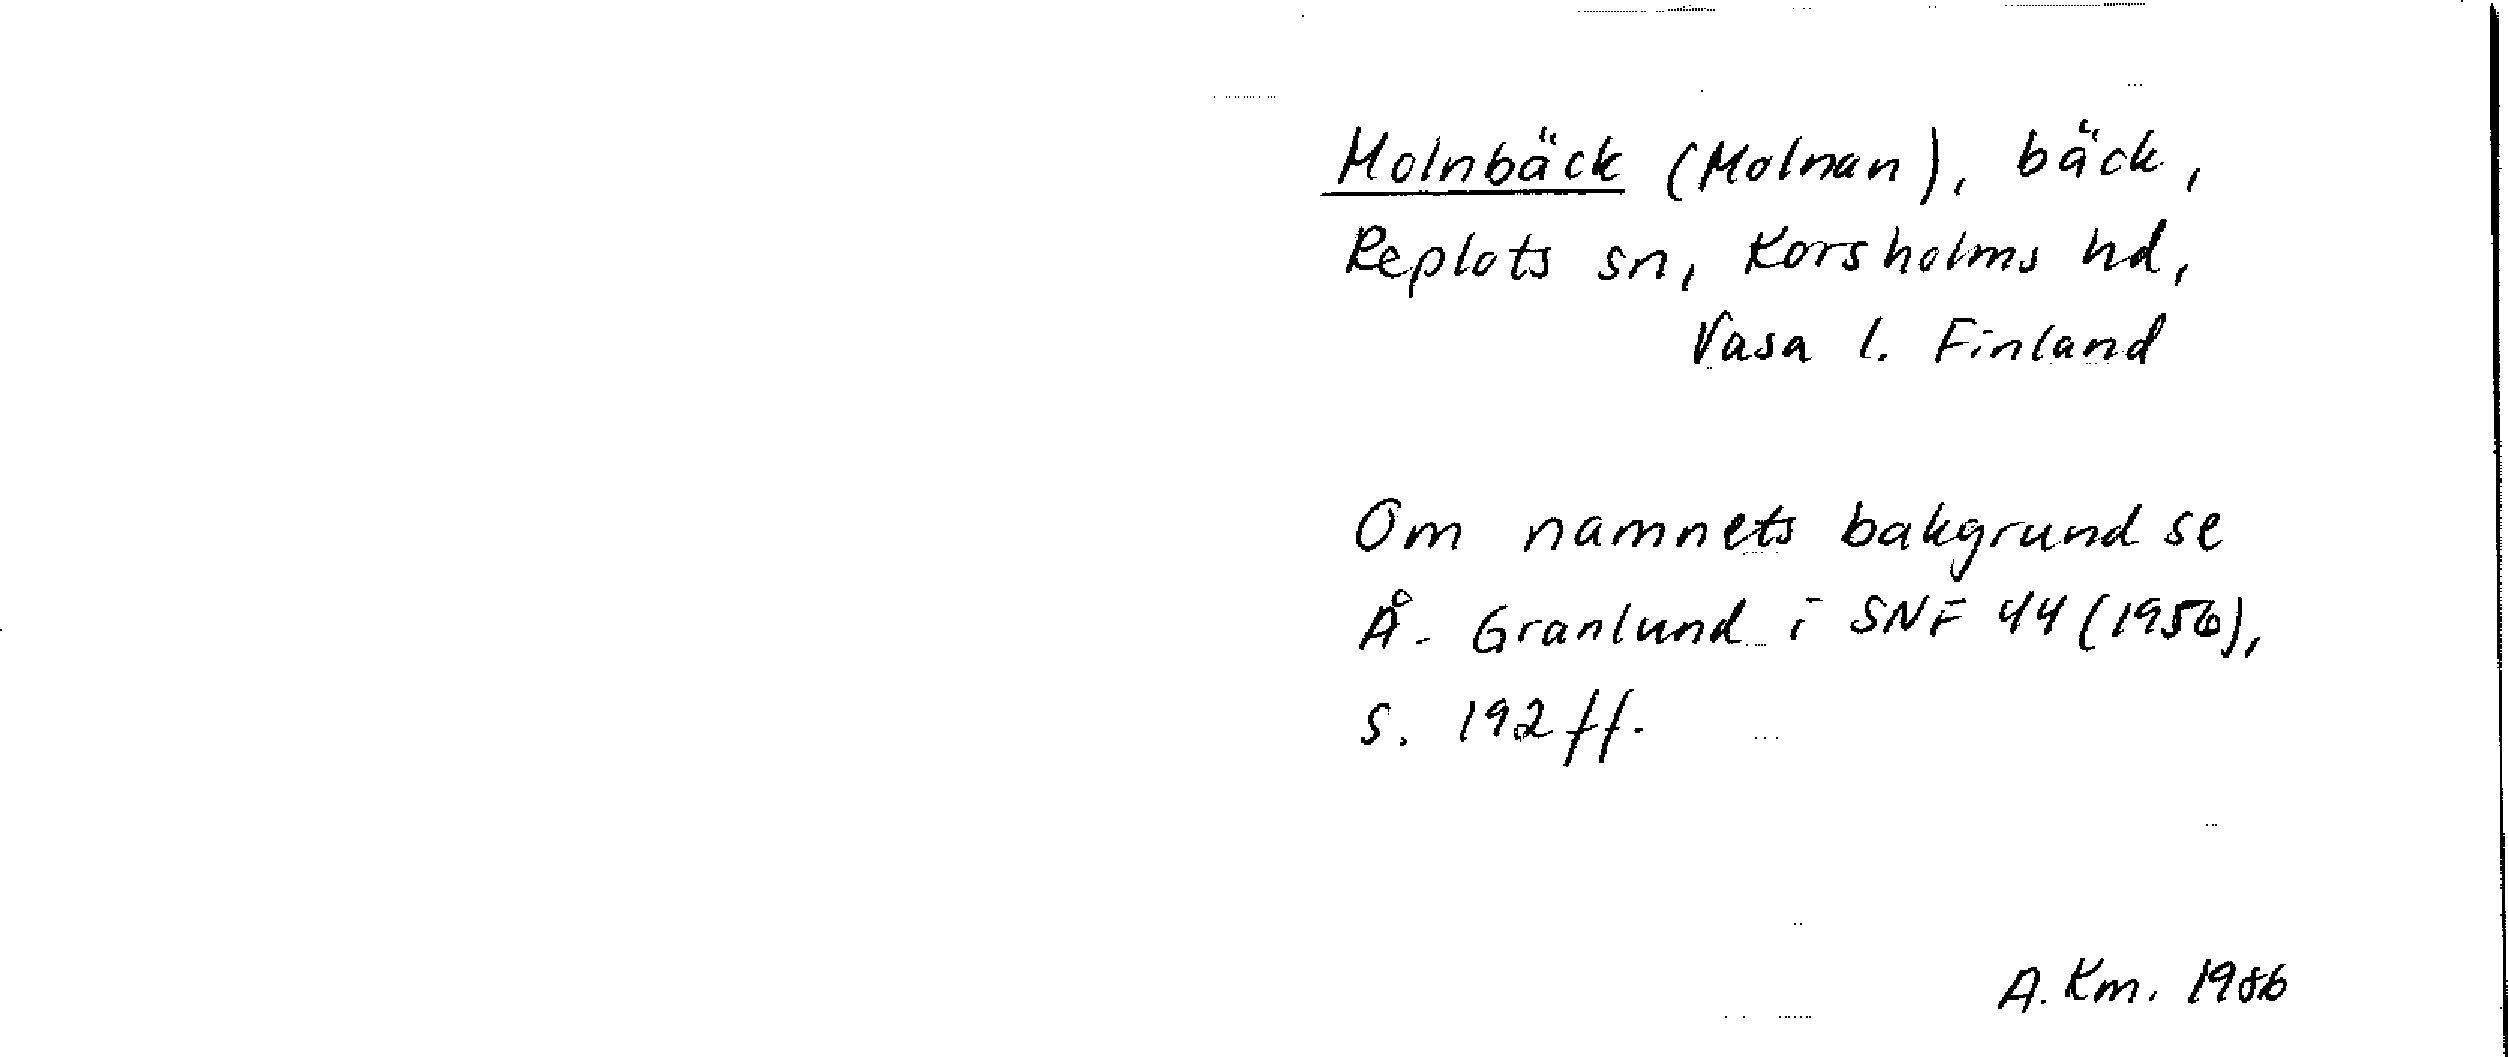 Molnbäck (Molnan), bäck,
Replots sn, Korsholms hd,
Vasa l. Finland
Om namnets bakgrund se
Å. Granlund i SNF 44 (1956),
s. 192 ff.
A. Km. 1986